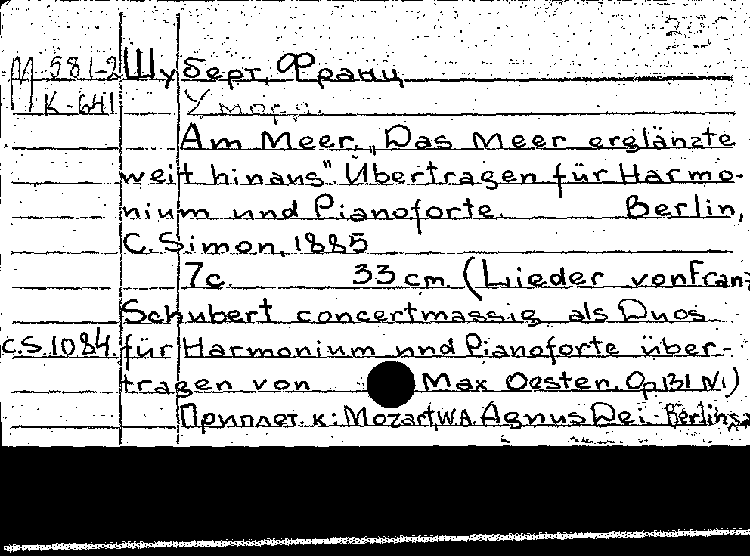 М 981-2 Шуберт, Франц
К-641 У моря.
Am Meer. „Das Meer erglänzte
weit hinaus" Übertragen für Harmo-
nium und Pianoforte. Berlin,
C. Simon, 1885
7c. 33 cm (Lieder von Fran
Schubert concertmassig als Duos
C.S.1084. für Harmonium und Pianoforte über-
tragen von Max Oesten. Op 131 N1)
Приплет. к: Mozart W.A. Agnus Dei.-Berlin